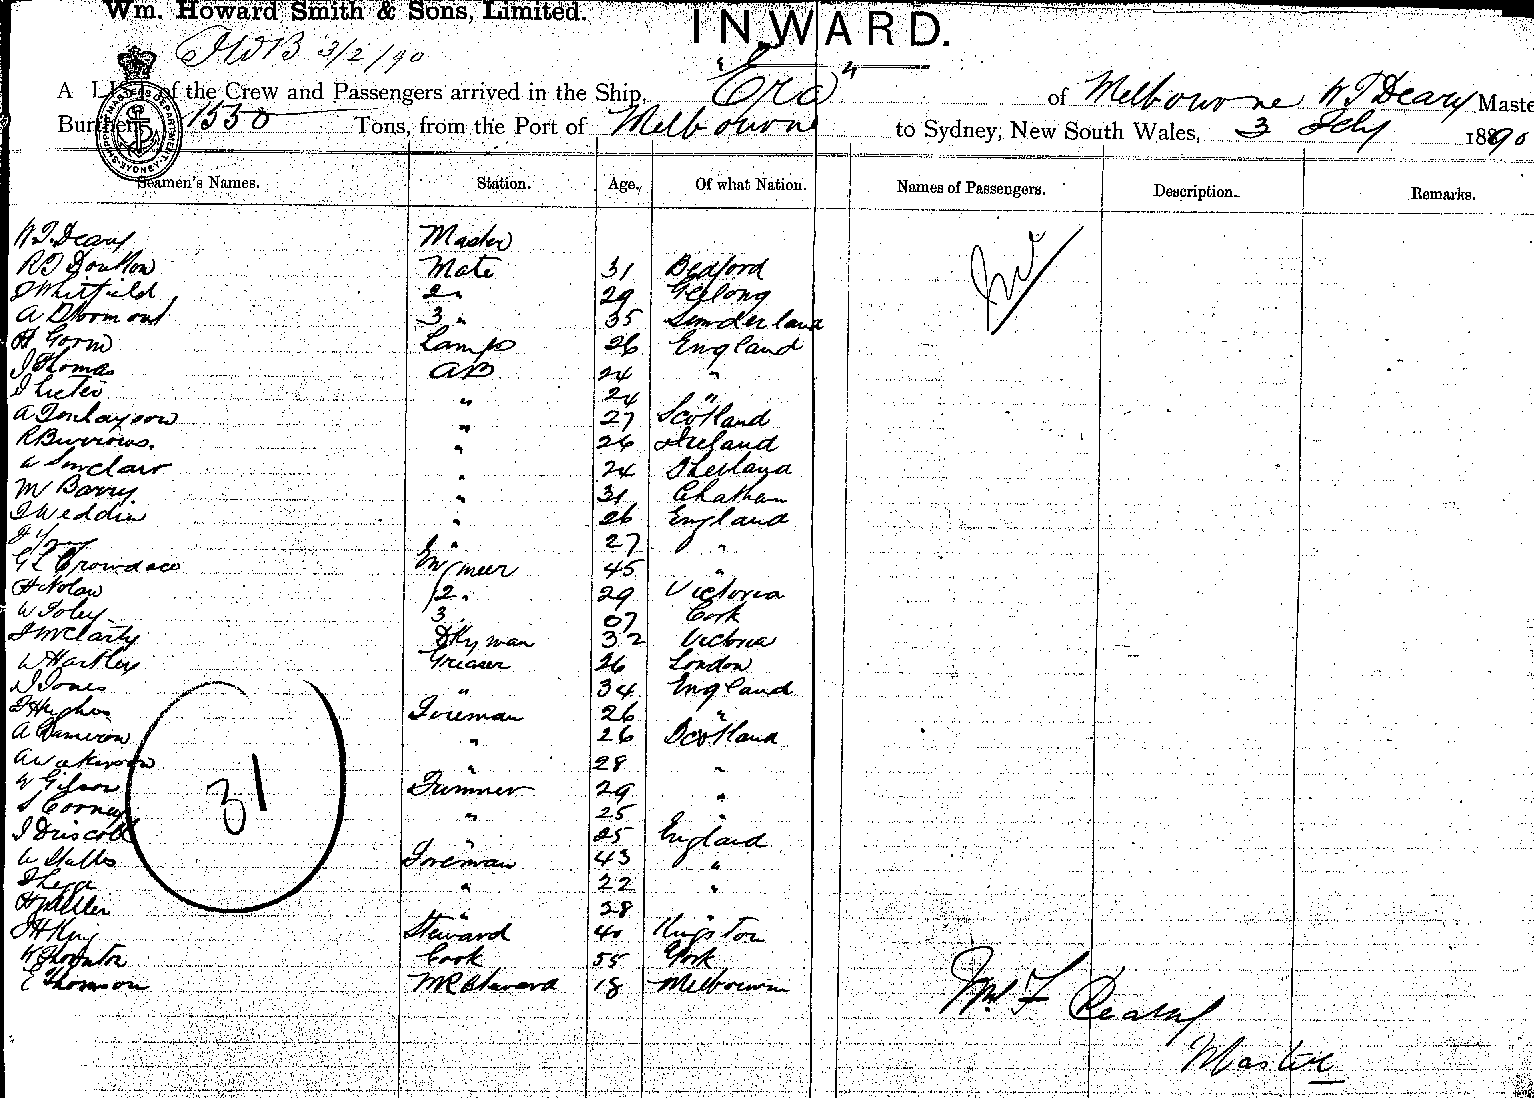 Wm. Howard Smith & Sons, Limited.
INWARD.
3/2/90
A LIST of the Crew and Passengers arrived in the Ship, "Era" of Melbourne W T Deary Maste
Burthen 1550 Tons, from the Port of Melbourne to Sydney, New South Wales, 3 Feby 1890
Seamen's Names. Station. Age. Of what Nation. Names of Passengers. Description. Remarks.
W T Deary Master
R T Doulton Mate 31 Bedford
J Whitfield 2 " 29 Geelong
A Dormond 3 " 35 Sunderland
H Gorm Lamps 26 England
J Thomas AB 24 "
J " 24 "
A " 27 Scotland
R Burrows. " 26 Ireland
W Sinclair " 24 Shetland
M Barry " 31 Chatham
J Weddin " 26 England
J " 27 "
G L Crowdace Engineer 45 "
H Nolan 2 " 29 Victoria
W Foley 3 Cork
J McClarty Dky man 32 Victoria
W Hartley Greaser 26 London
J Jones " 34 England
J Hughes Fireman 26 "
A Cameron " 26 Scotland
A " 28 "
W Gibson Trimmer 29 "
S Corney " 25 "
J Driscoll " 25 England
W Stubbs Foreman 43 "
J " 22 "
H Miller " 38
J H King Steward 40 Kingston
W Thornton Cook 55 York
E Thomson Steward 18 Melbourne
31
Wm. T Deary
Master